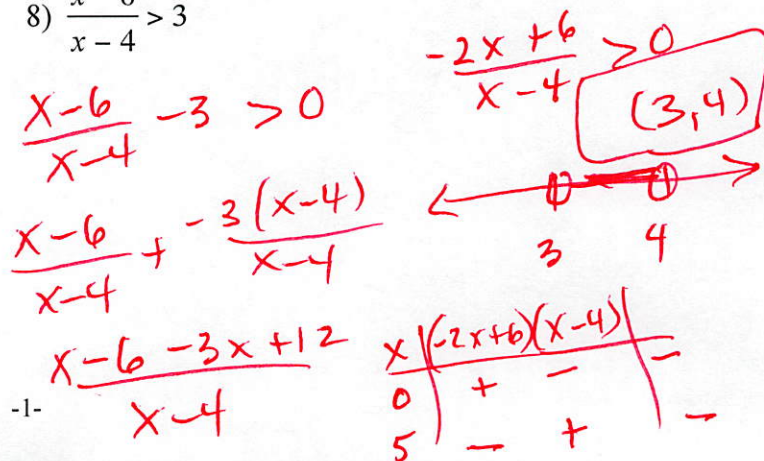 8) x - 6 / x - 4 > 3
x-6 / x-4 -3 > 0
x-6 / x-4 + -3(x-4) / x-4
x-6-3x+12 / x-4
-1-
-2x+6 / x-4 > 0
(3,4)
3 4
x | (-2x+6)(x-4) |
0 | + - | -
5 | - + | -